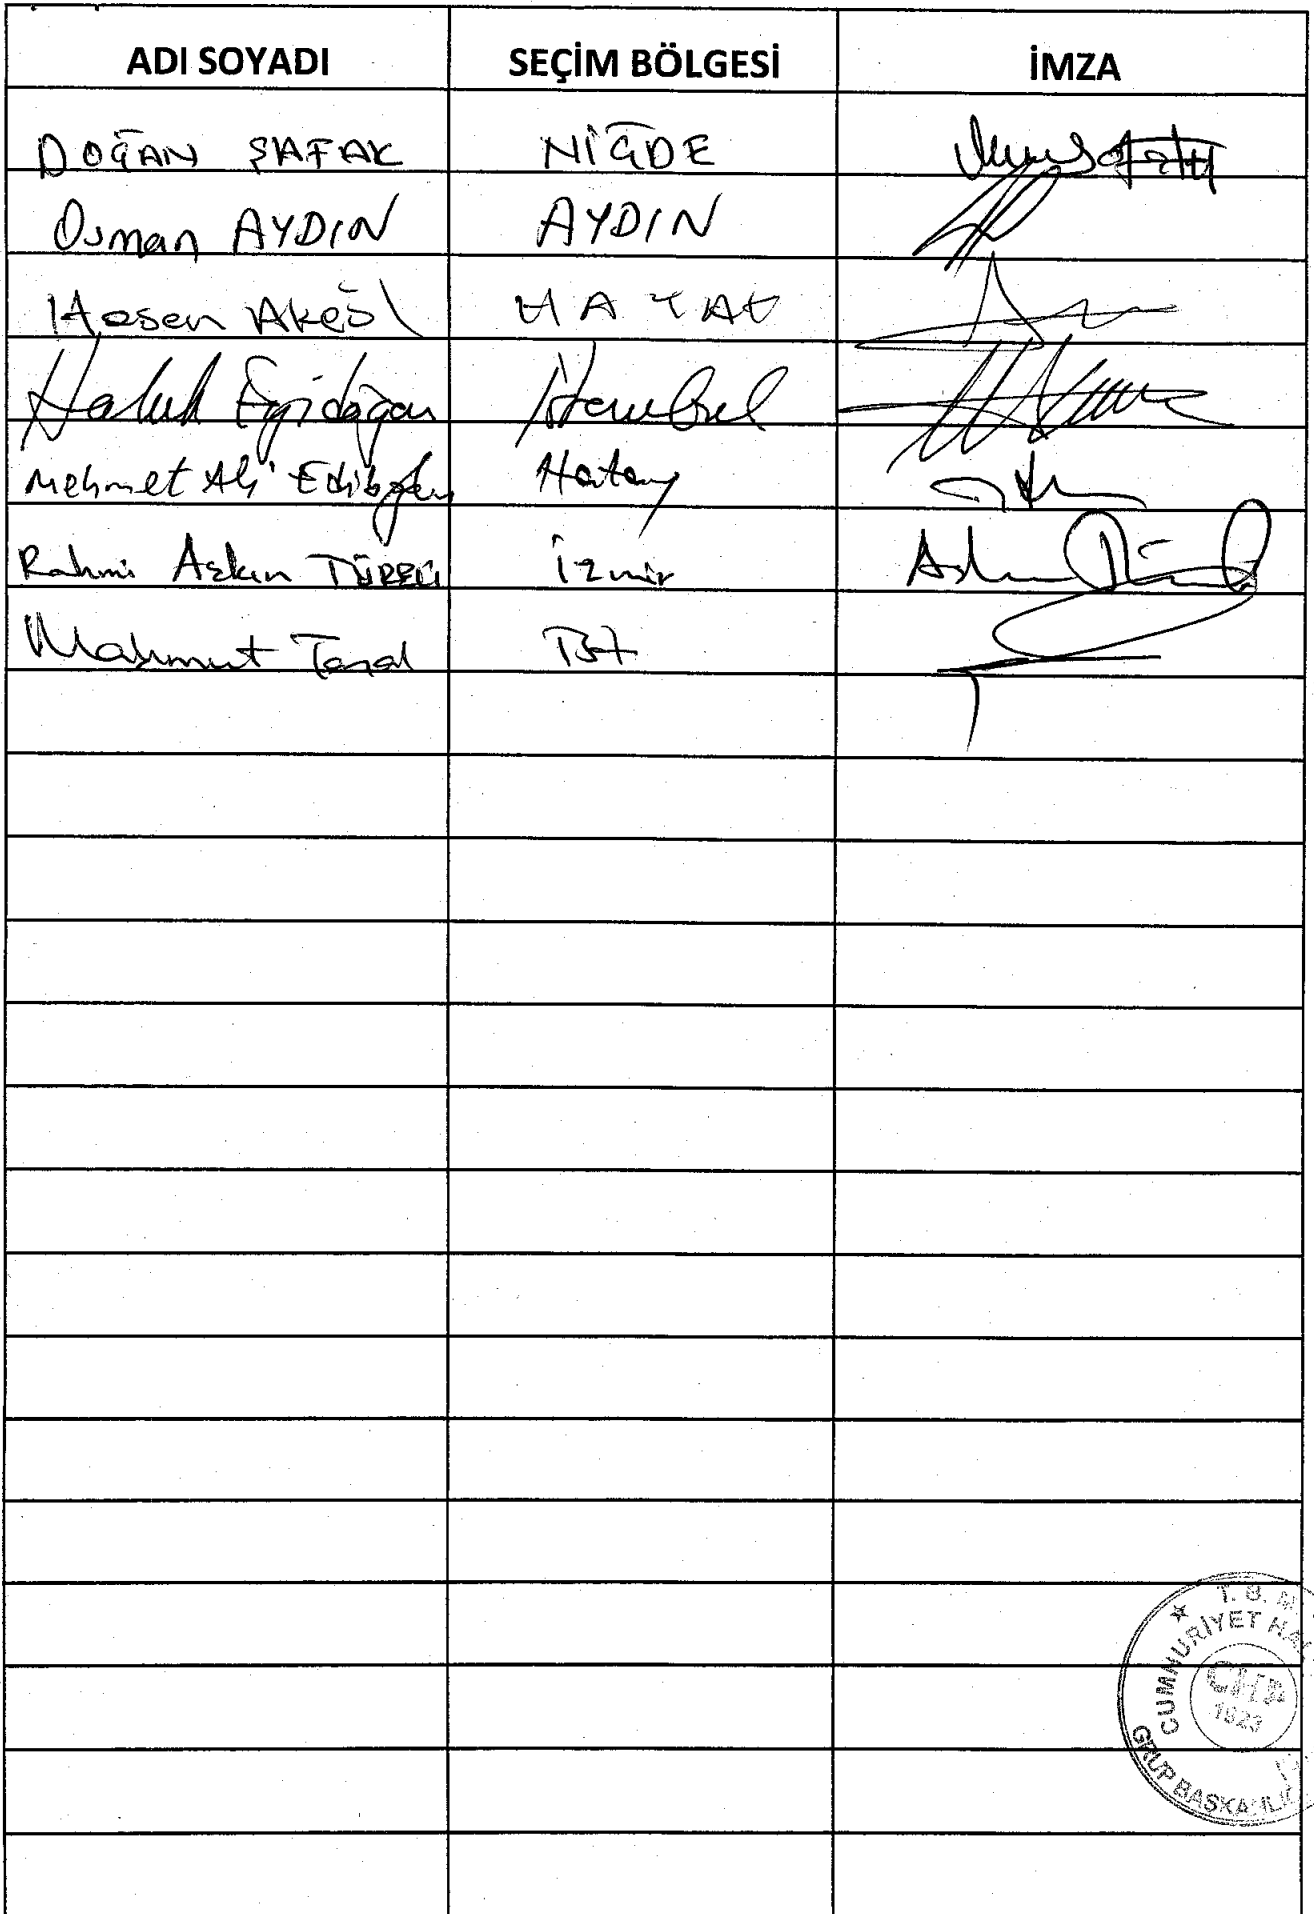 ADI SOYADI SEÇİM BÖLGESİ İMZA
DOĞAN ŞAFAK NİĞDE
Osman AYDIN AYDIN
Hasan Akgöl HATAY
Haluk Eyidoğan İstanbul
Mehmet Ali Ediboğlu Hatay
Rahmi Aşkın TÜRELİ İzmir
Mahmut Tanal İst
T. B. M
CUMHURİYET HAL
CHP
1923
GRUP BAŞKANLIĞI